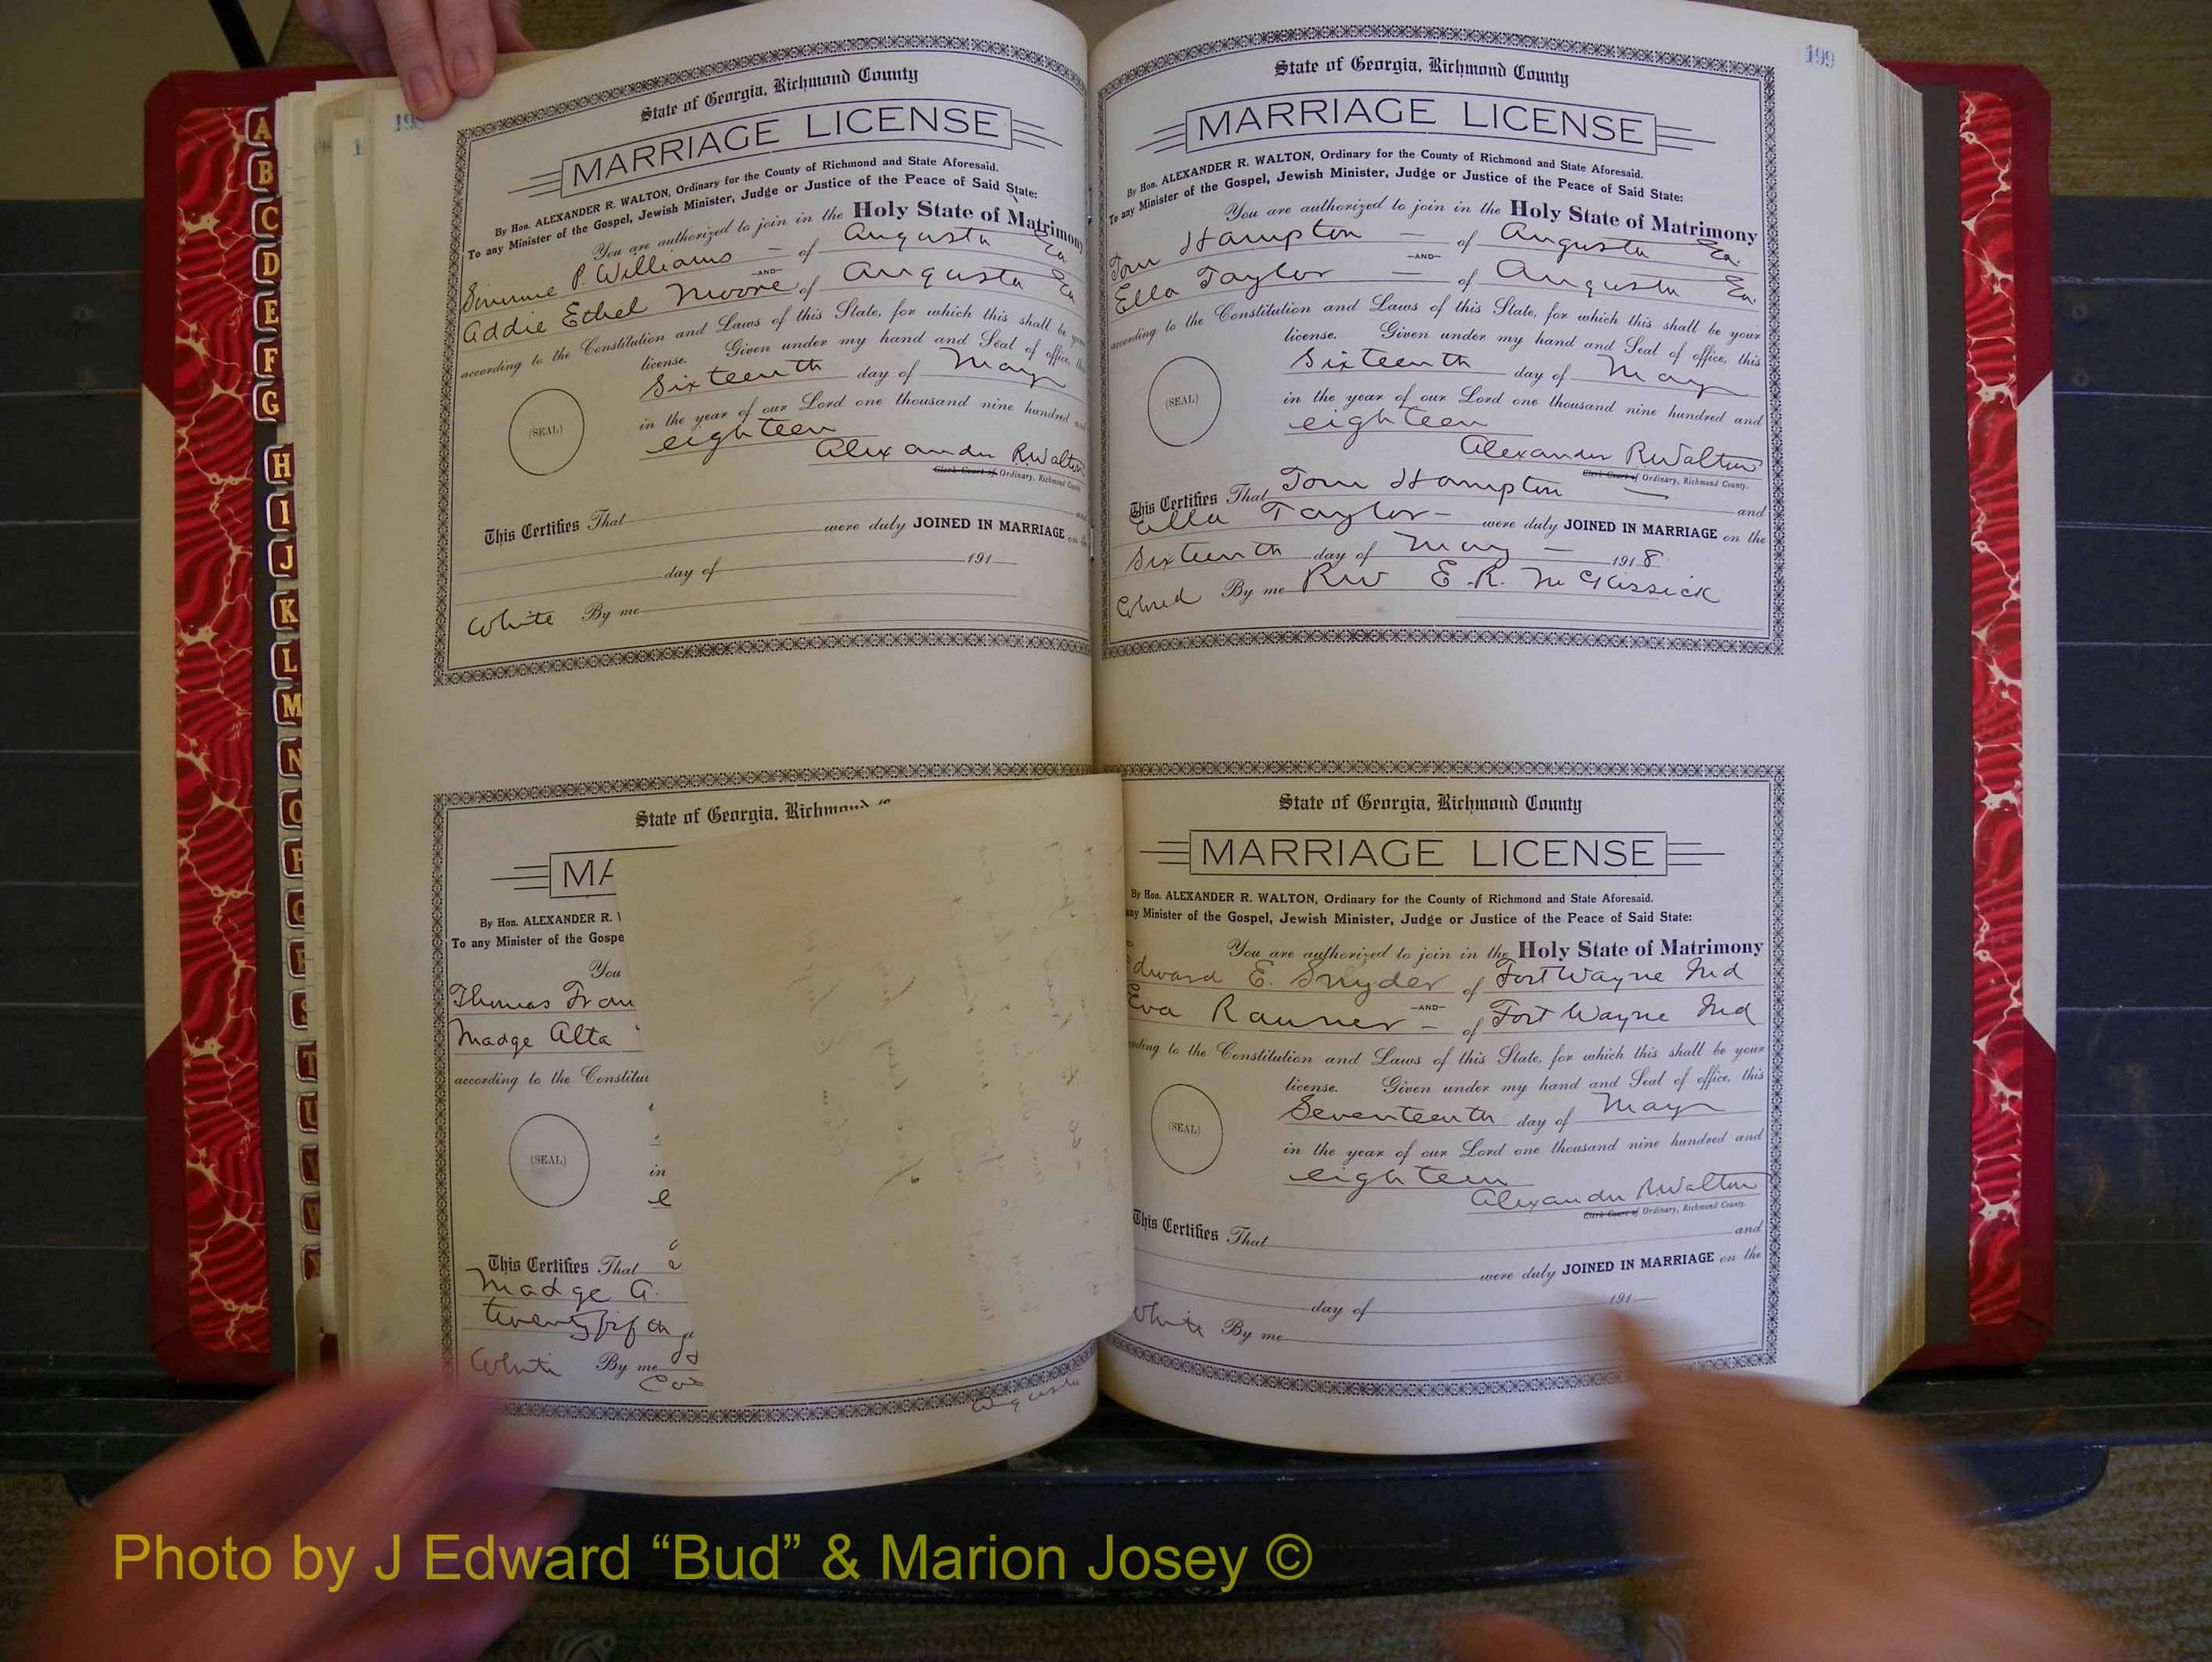 A
B
C
D
E
F
G
H
I
J
K
L
M
N
O
P
Q
R
S
T
U
V
W
State of Georgia, Richmond County
MARRIAGE LICENSE
By Hon. ALEXANDER R. WALTON, Ordinary for the County of Richmond and State Aforesaid.
To any Minister of the Gospel, Jewish Minister, Judge or Justice of the Peace of Said State:
You are authorized to join in the Holy State of Matrimony
Simmie P. Williams — of Augusta Ga
—AND—
Addie Ethel Moore of Augusta Ga
according to the Constitution and Laws of this State, for which this shall be your
license. Given under my hand and Seal of office, this
Sixteenth day of May
(SEAL)
in the year of our Lord one thousand nine hundred and
eighteen
Alexander R Walton
Clerk Court of Ordinary, Richmond County.
This Certifies That and
were duly JOINED IN MARRIAGE on the
day of 191
White By me
State of Georgia, Richmond
MA
By Hon. ALEXANDER R.
To any Minister of the Gospe
You
Thomas Fran
Madge Alta
according to the Constitu
(SEAL)
in
e
This Certifies That
Madge A.
twentyfifth
White By me
Augusta
199
State of Georgia, Richmond County
MARRIAGE LICENSE
By Hon. ALEXANDER R. WALTON, Ordinary for the County of Richmond and State Aforesaid.
To any Minister of the Gospel, Jewish Minister, Judge or Justice of the Peace of Said State:
You are authorized to join in the Holy State of Matrimony
Tom Hampton — of Augusta Ga.
—AND—
Ella Taylor — of Augusta Ga.
according to the Constitution and Laws of this State, for which this shall be your
license. Given under my hand and Seal of office, this
Sixteenth day of May
(SEAL)
in the year of our Lord one thousand nine hundred and
eighteen
Alexander R Walton
Clerk Court of Ordinary, Richmond County.
This Certifies That Tom Hampton — and
Ella Taylor — were duly JOINED IN MARRIAGE on the
Sixteenth day of May — 1918
Colored By me Rev E. R. McKissick
State of Georgia, Richmond County
MARRIAGE LICENSE
By Hon. ALEXANDER R. WALTON, Ordinary for the County of Richmond and State Aforesaid.
any Minister of the Gospel, Jewish Minister, Judge or Justice of the Peace of Said State:
You are authorized to join in the Holy State of Matrimony
Edward E. Snyder of Fort Wayne Ind
—AND—
Eva Rauner — of Fort Wayne Ind
ording to the Constitution and Laws of this State, for which this shall be your
license. Given under my hand and Seal of office, this
Seventeenth day of May
(SEAL)
in the year of our Lord one thousand nine hundred and
eighteen
Alexander R Walton
Clerk Court of Ordinary, Richmond County.
This Certifies That and
were duly JOINED IN MARRIAGE on the
day of 191
White By me
Photo by J Edward “Bud” & Marion Josey ©